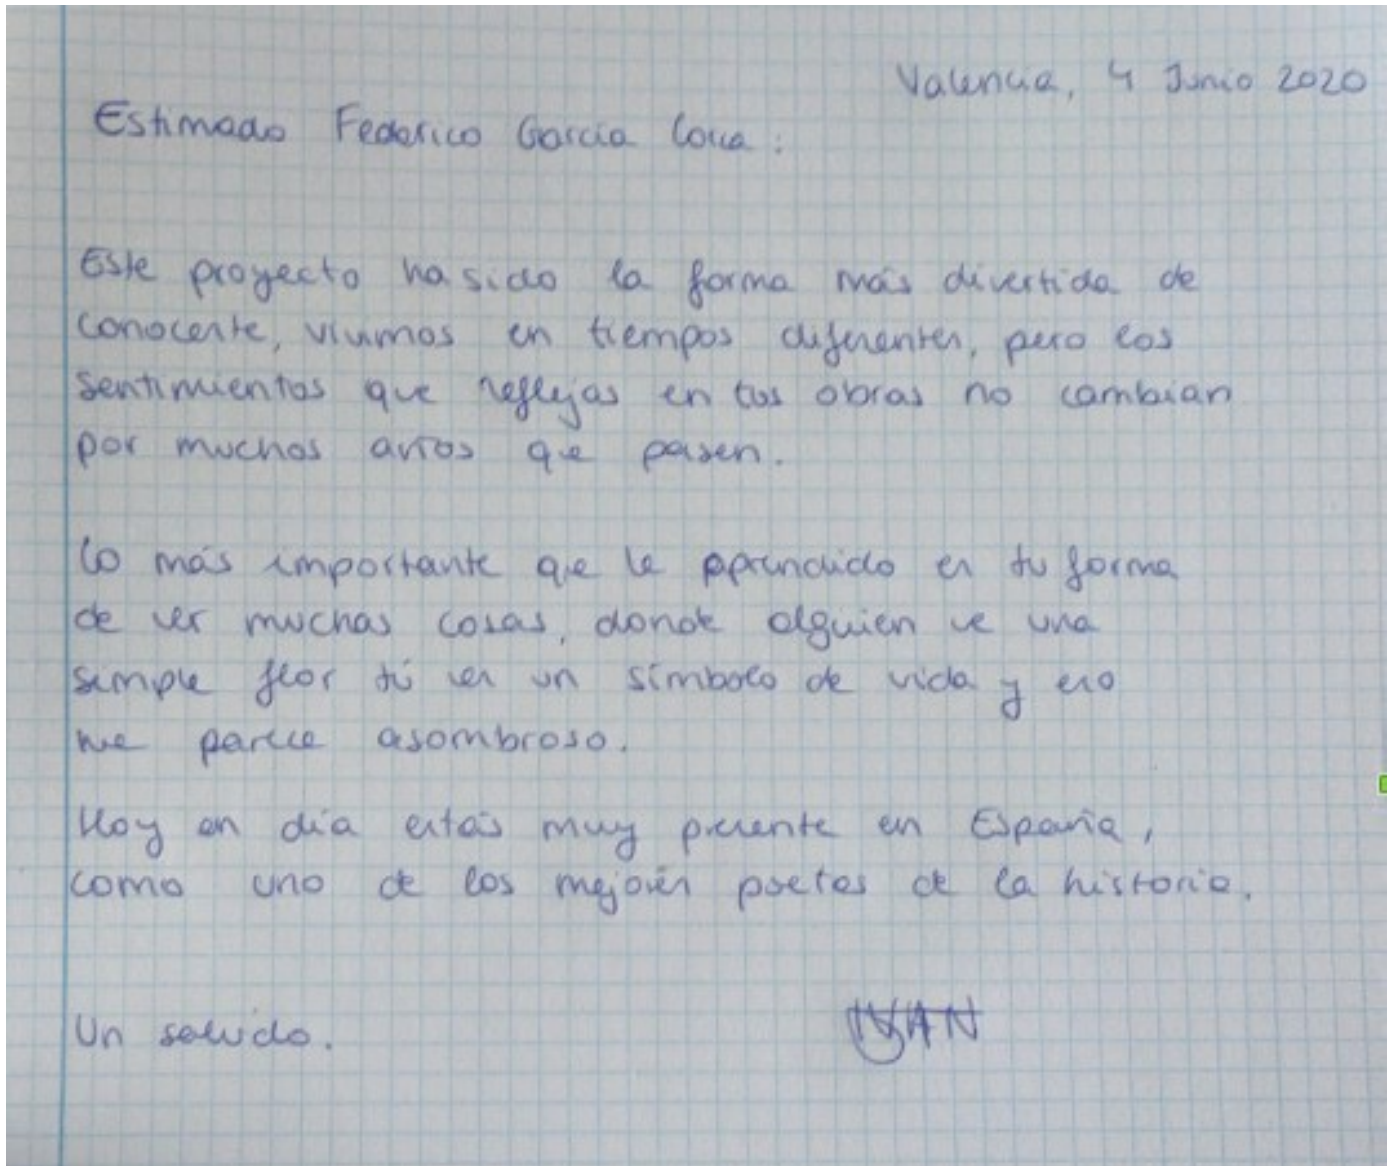 Valencia, 4 Junio 2020
Estimado Federico García Lorca:
Este proyecto ha sido la forma más divertida de
conocerte, vivimos en tiempos diferentes, pero los
sentimientos que reflejas en tus obras no cambian
por muchos años que pasen.
Lo más importante que he aprendido es tu forma
de ver muchas cosas, donde alguien ve una
simple flor tú ves un símbolo de vida y eso
me parece asombroso.
Hoy en día estás muy presente en España,
como uno de los mejores poetas de la historia.
Un saludo.
IVÁN